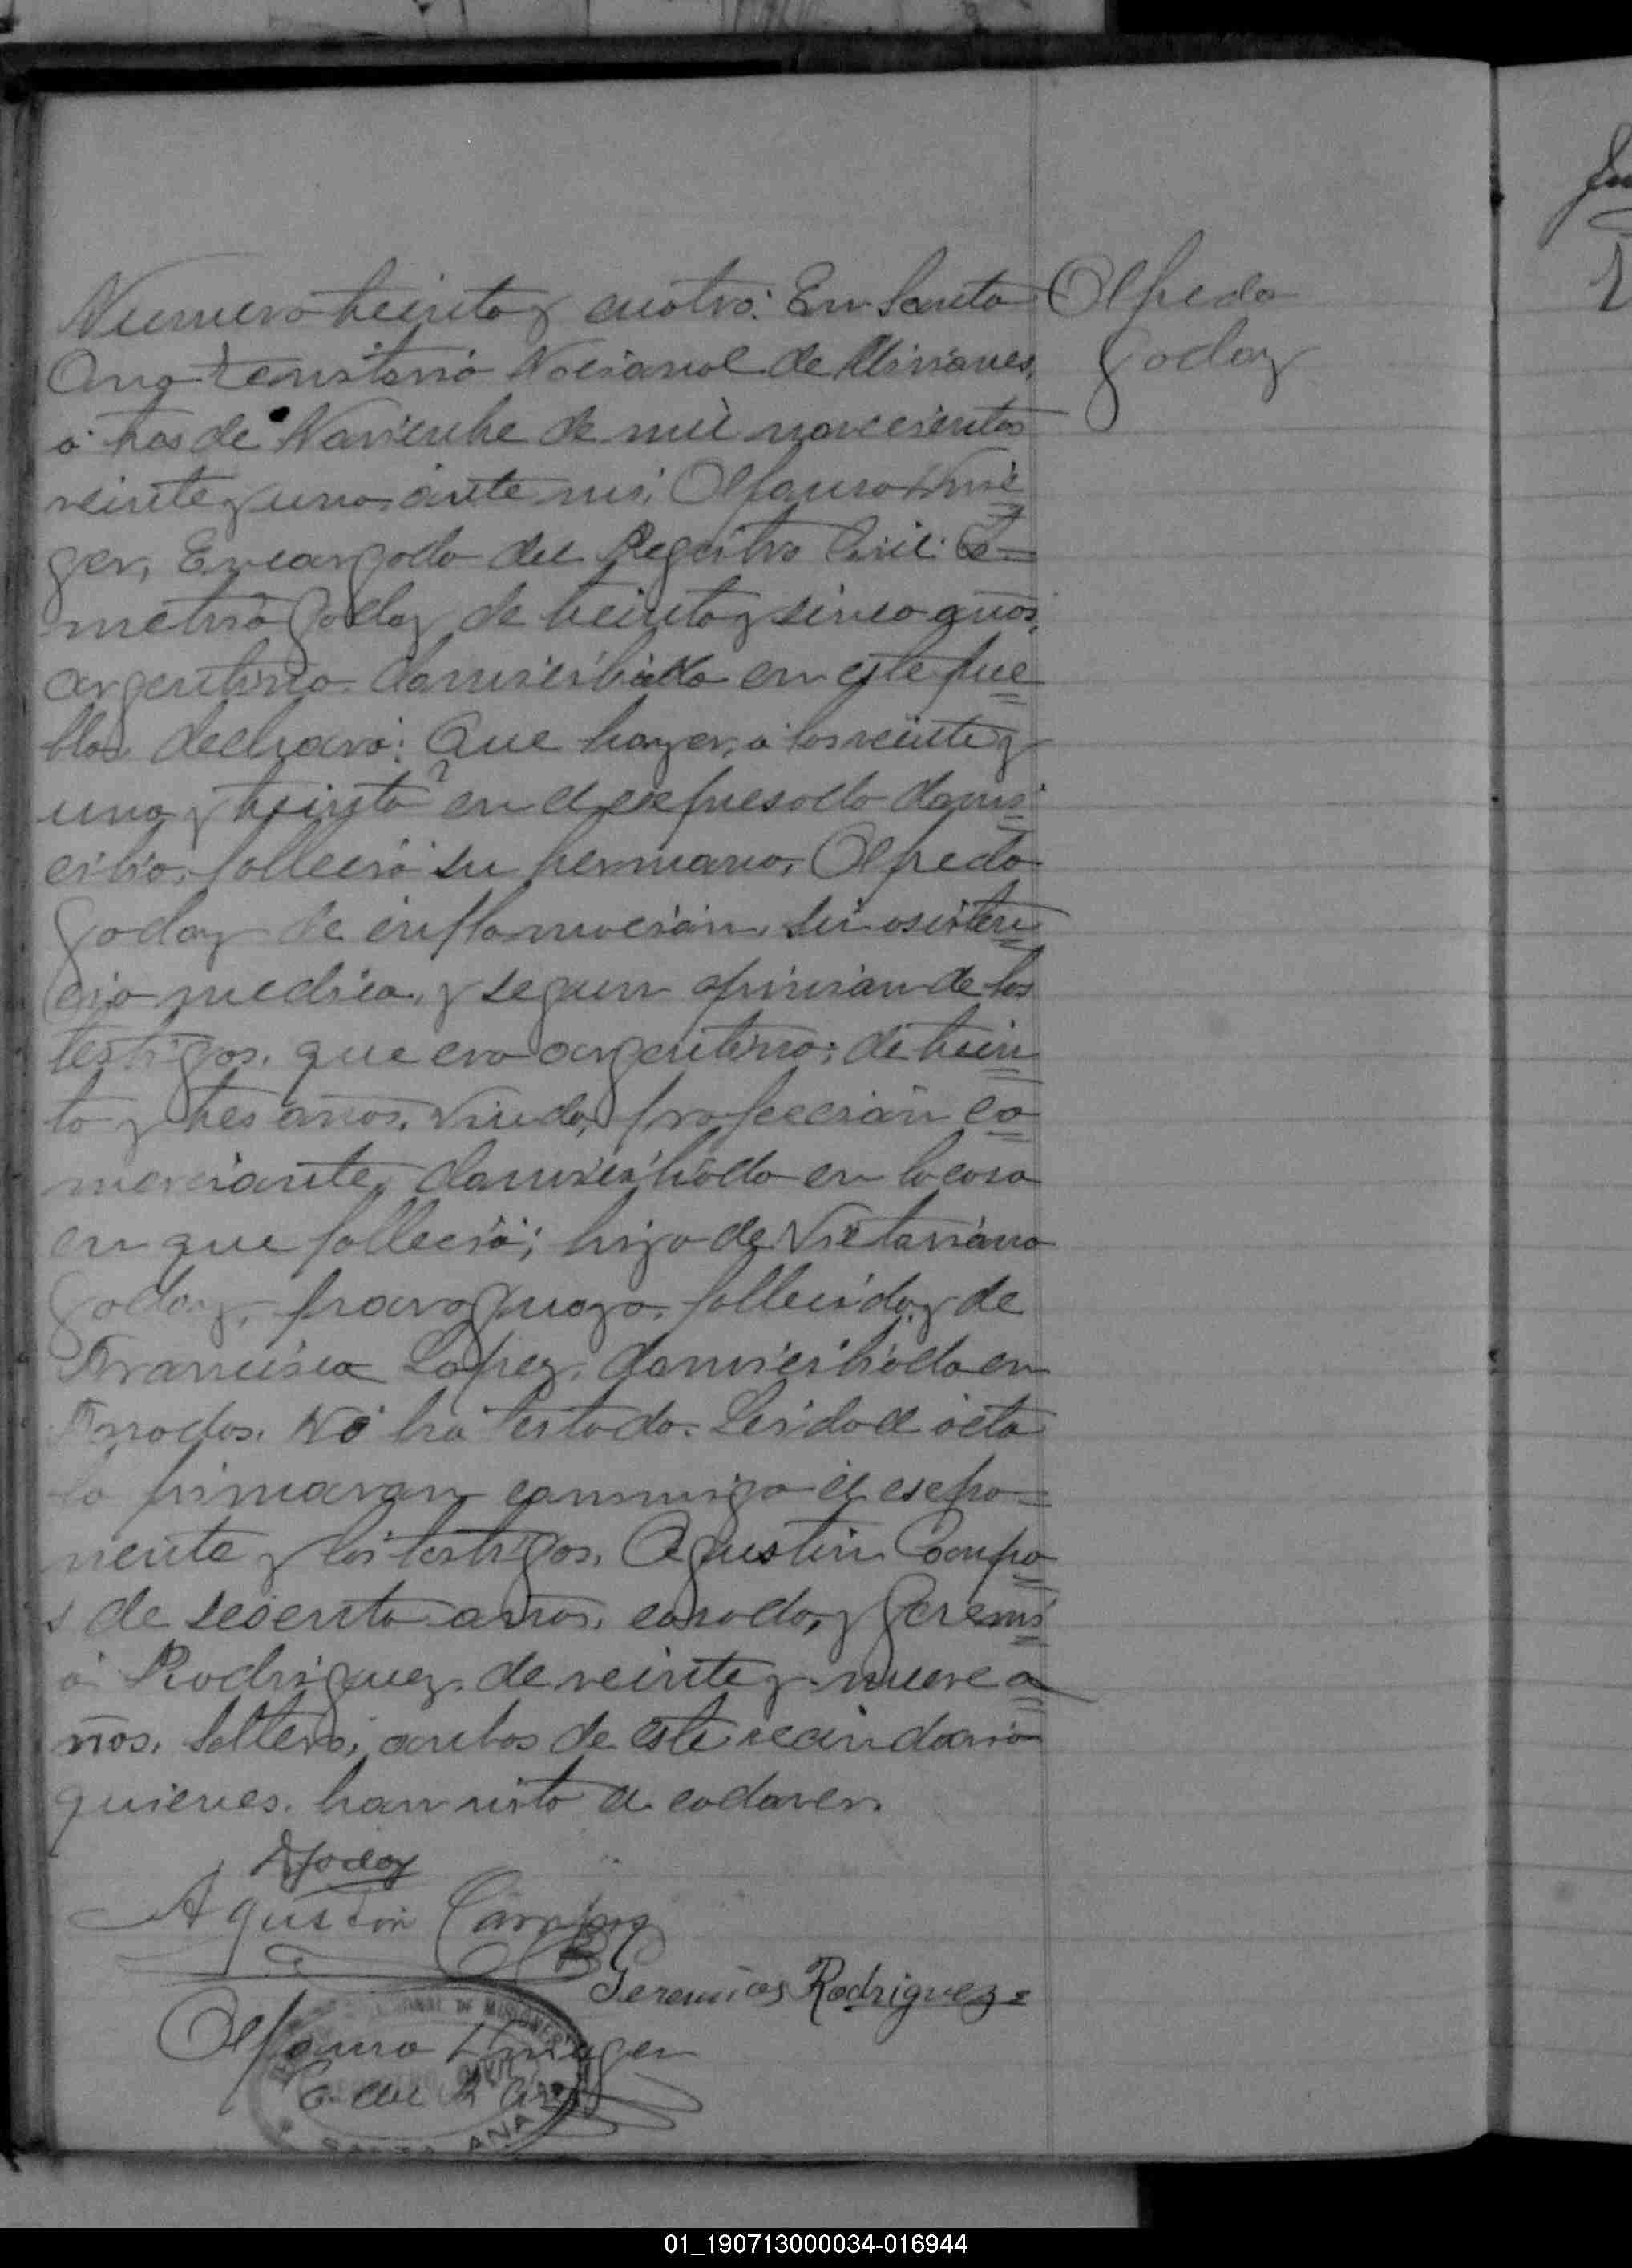 Numero treinta y cuatro: En Santa
Ana Territorio Nacional de Misiones,
a tres de Noviembre de mil novecientos
veinte y uno, ante mi,
ger, Encargado del Registro Civil:
metrio Godoy de treinta y sinco años,
argentino, domiciliado en este pue
blo declaró: Que hayer, a las veinte y
una y treinta en el expresado domi
cilio, falleció su hermano, Alfredo
Godoy de inflamación, sin asisten
cia medica, y segun opinion de los
testigos, que era argentino, de trein
ta y tres años, viudo, profeccion co
merciante, domiciliado en la casa
en que falleció; hijo de Victoriano
Godoy, paraguayo, fallecido, y de
Francisca Lopez, domiciliada en
Posadas. No ha testado. Leida el acta
la firmaron conmigo el expo=
nente y los testigos, Agustin Campo
s de sesenta años, casado, y Geremi
a Rodriguez, de veinte y nueve a
ños, soltero, ambos de este vecindario
quienes han visto el cadaver.
Alfredo
Godoy
Godoy
Agustin Campos
Geremias Rodriguez=
E. del R. Civil
NAL DE MISIONES
CIVIL
SANTA ANA
01_190713000034-016944